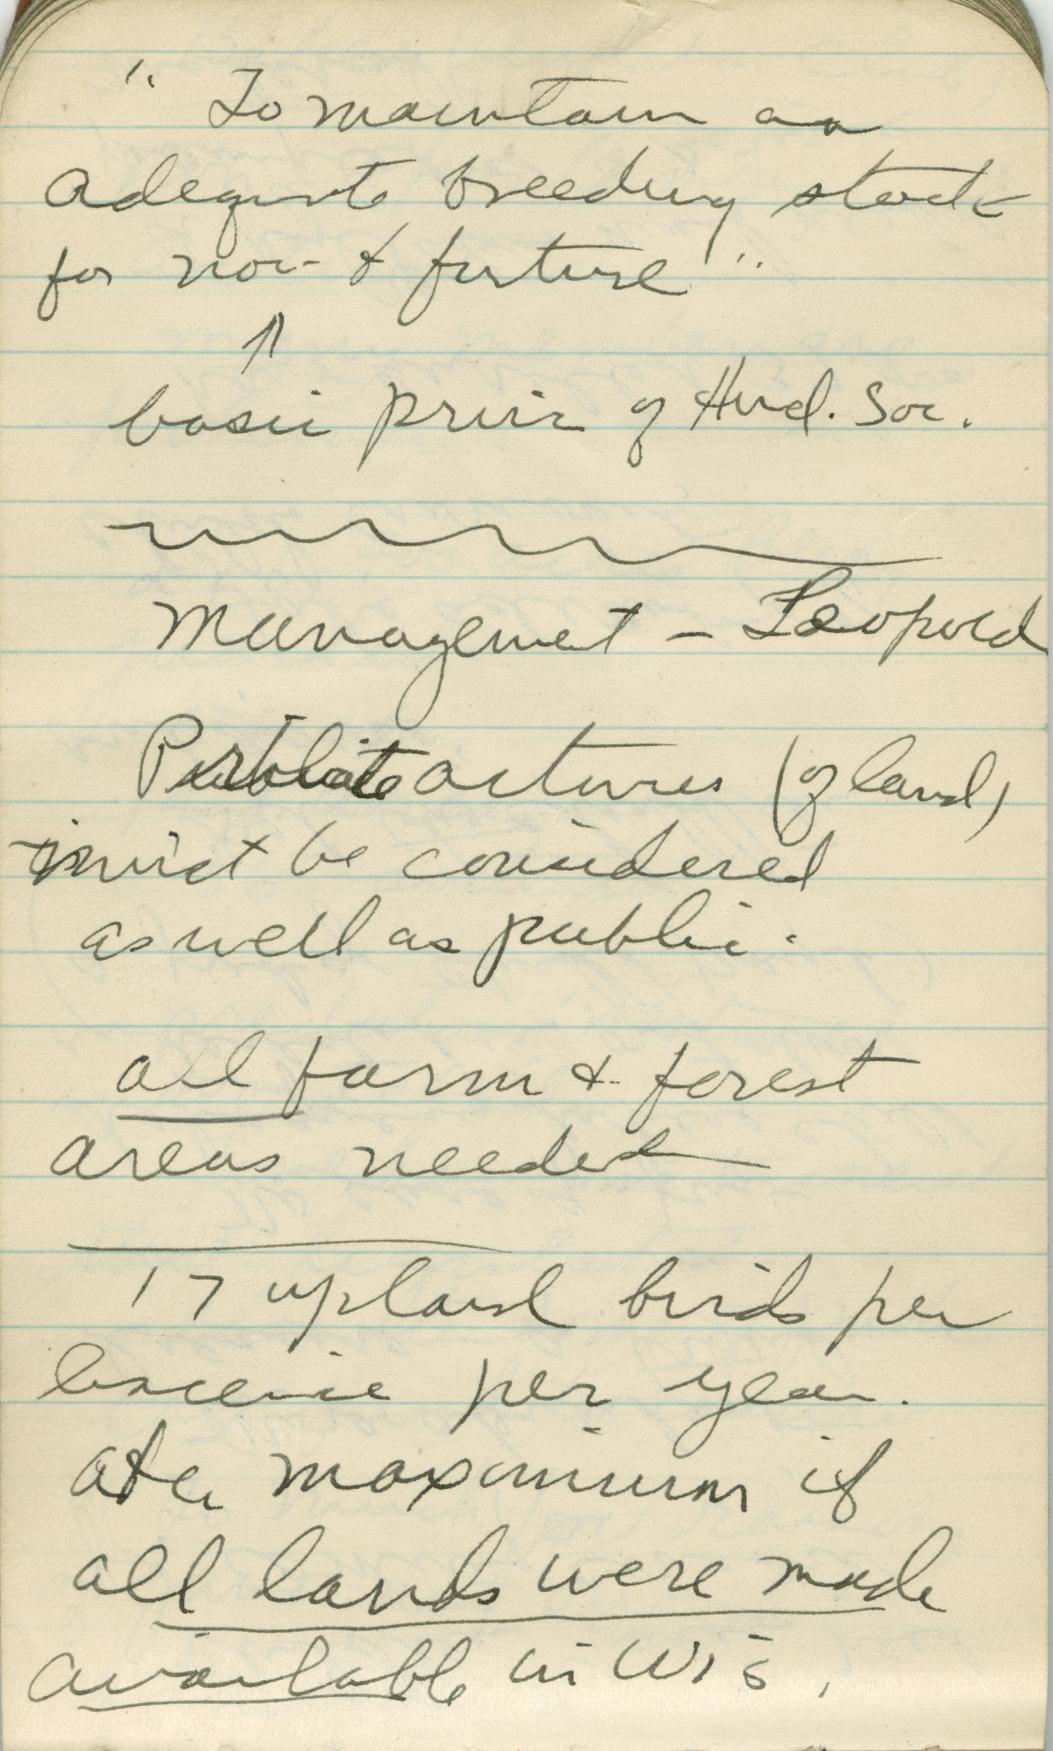 "To maintain an
adequate breeding stock
for now & future"
basic prin of Aud. Soc.
Management - Leopold
Private actures (of land)
must be considered
as well as public.
all farm & forest
areas needed
17 upland birds per
license per year.
at a maximum if
all lands were made
available in Wis.